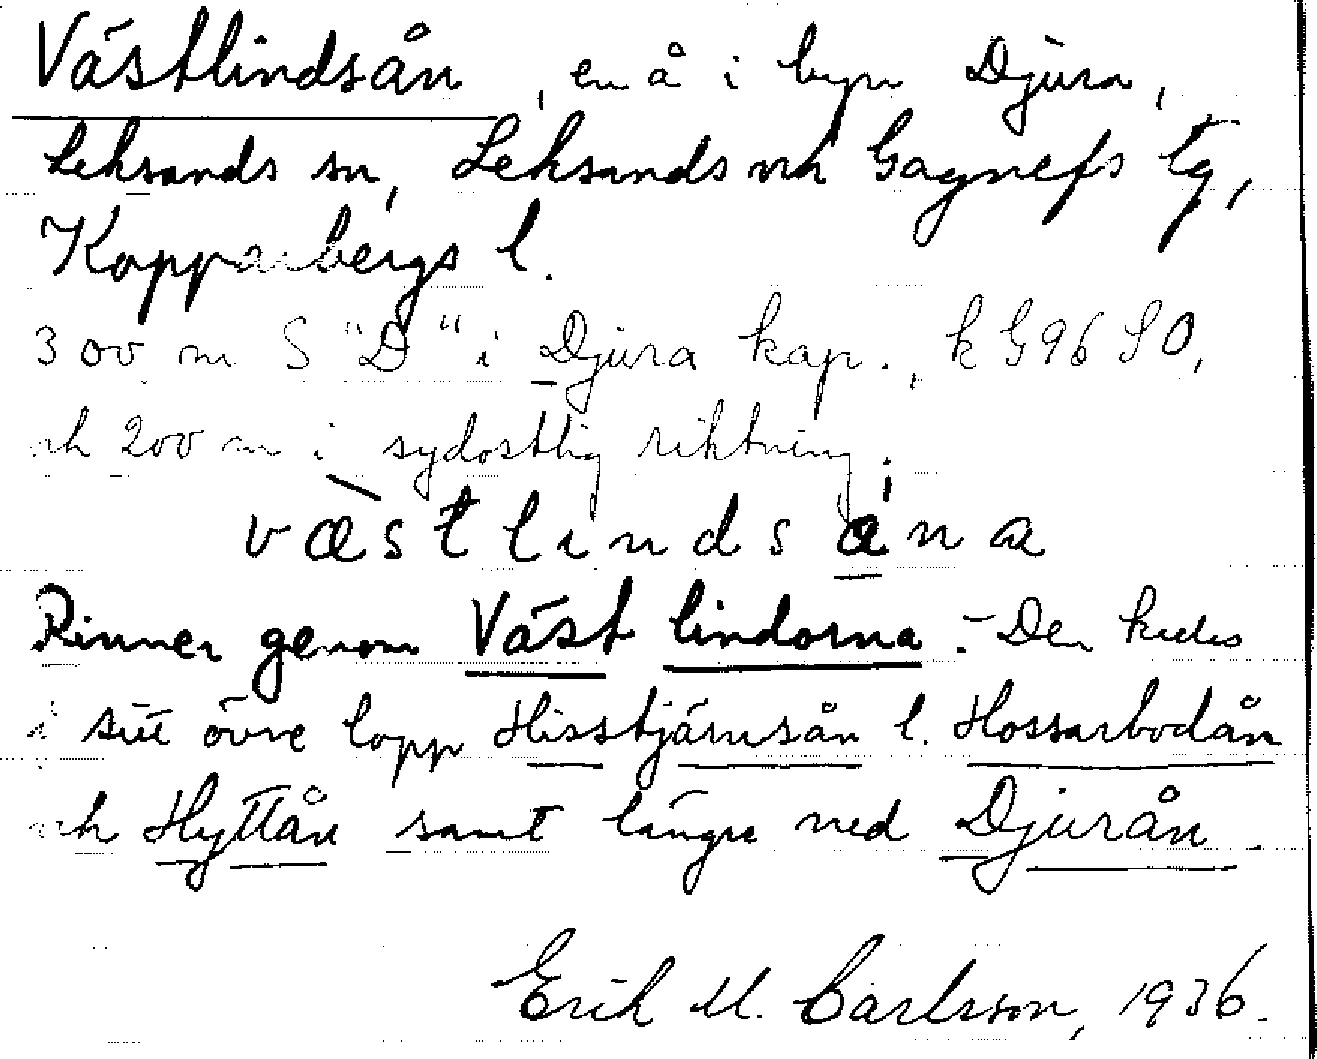 Västlindsån, en å i byn Djura,
Leksands sn, Leksands och Gagnefs tg,
Kopparbergs l.
300 m S "D" i Djura kap., k G96 SO,
och 200 m i sydostlig riktning.
västlindsåna
Rinner genom Västlindorna. - Den kallas
i sitt övre lopp Hisstjärnsån l. Hossarbodån
och Hyttån samt längre ned Djurån.
Erik M. Carlsson, 1936.